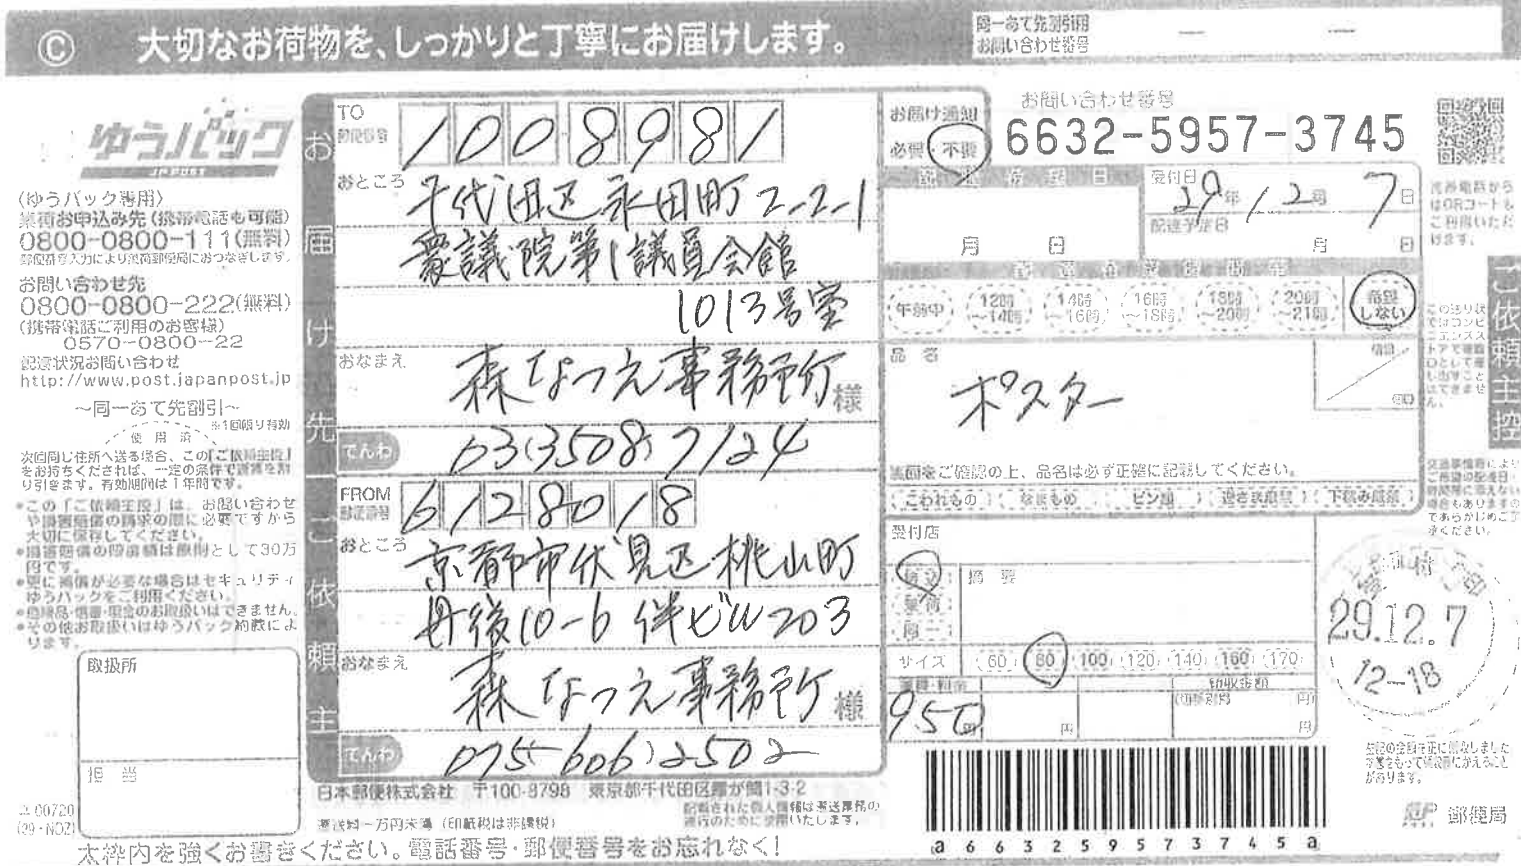 © 大切なお荷物を、しっかりと丁寧にお届けします。
同一あて先割引用
お問い合わせ番号
ゆうパック
JP POST
(ゆうパック専用)
集荷お申込み先(携帯電話も可能)
0800-0800-111(無料)
郵便番号入力により集荷郵便局におつなぎします。
お問い合わせ先
0800-0800-222(無料)
(携帯電話ご利用のお客様)
0570-0800-22
配達状況お問い合わせ
http://www.post.japanpost.jp
~同一あて先割引~
※1回限り有効
使用済
次回同じ住所へ送る場合、この「ご依頼主控」
をお持ちくだされば、一定の条件で運賃を割
り引きます。有効期間は1年間です。
●この「ご依頼主控」は、お問い合わせ
や損害賠償の請求の際に必要ですから
大切に保存してください。
●損害賠償の限度額は原則として30万
円です。
●更に補償が必要な場合はセキュリティ
ゆうパックをご利用ください。
●危険品・信書・現金のお取扱いはできません。
●その他お取扱いはゆうパック約款によ
ります。
取扱所
担当
00720
(29・NDZ)
お届け先
TO
郵便番号
1008981
おところ
千代田区永田町2-2-1
衆議院第1議員会館
1013号室
おなまえ
森なつえ事務所 様
でんわ
03(3508)7124
ご依頼主
FROM
郵便番号
6128018
おところ
京都市伏見区桃山町
丹後10-6 伴ビル203
おなまえ
森なつえ事務所 様
でんわ
075-606)2502
日本郵便株式会社 〒100-8798 東京都千代田区霞が関1-3-2
運送料一万円未満(印紙税は非課税)
記載された個人情報は運送業務の
遂行のために使用いたします。
太枠内を強くお書きください。電話番号・郵便番号をお忘れなく!
お届け通知
必要・不要
お問い合わせ番号
6632-5957-3745
配達希望日
月 日
受付日
29年 12月 7日
配達予定日
月 日
配達希望時間帯
午前中
12時~14時
14時~16時
16時~18時
18時~20時
20時~21時
希望しない
品名
ポスター
個口
裏面をご確認の上、品名は必ず正確に記載してください。
こわれもの なまもの ビン類 逆さま厳禁 下積み厳禁
受付店
持込
集荷
同一
摘要
サイズ 60 80 100 120 140 160 170
運賃・料金
950円
円
領収金額
円
円
a663259573745a
ご依頼主控
携帯電話から
はQRコードも
ご利用いただ
けます。
この送り状
ではコンビ
ニエンスス
交通事情等により
ご希望の配達日・
時間帯に添えない
場合もありますの
であらかじめご了
承ください。
29.12.7
12-18
上記の金額を正に領収しました
郵便局